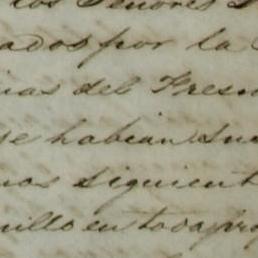 los Señores
ados por la
nas del Fresn
se habian su
nos siguient
nillo en toda pro